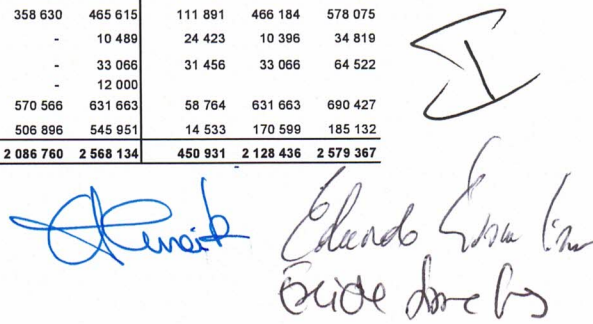 358 630 465 615 111 891 466 184 578 075
- 10 489 24 423 10 396 34 819
- 33 066 31 456 33 066 64 522
- 12 000
570 566 631 663 58 764 631 663 690 427
506 896 545 951 14 533 170 599 185 132
2 086 760 2 568 134 450 931 2 128 436 2 579 367
Eduardo